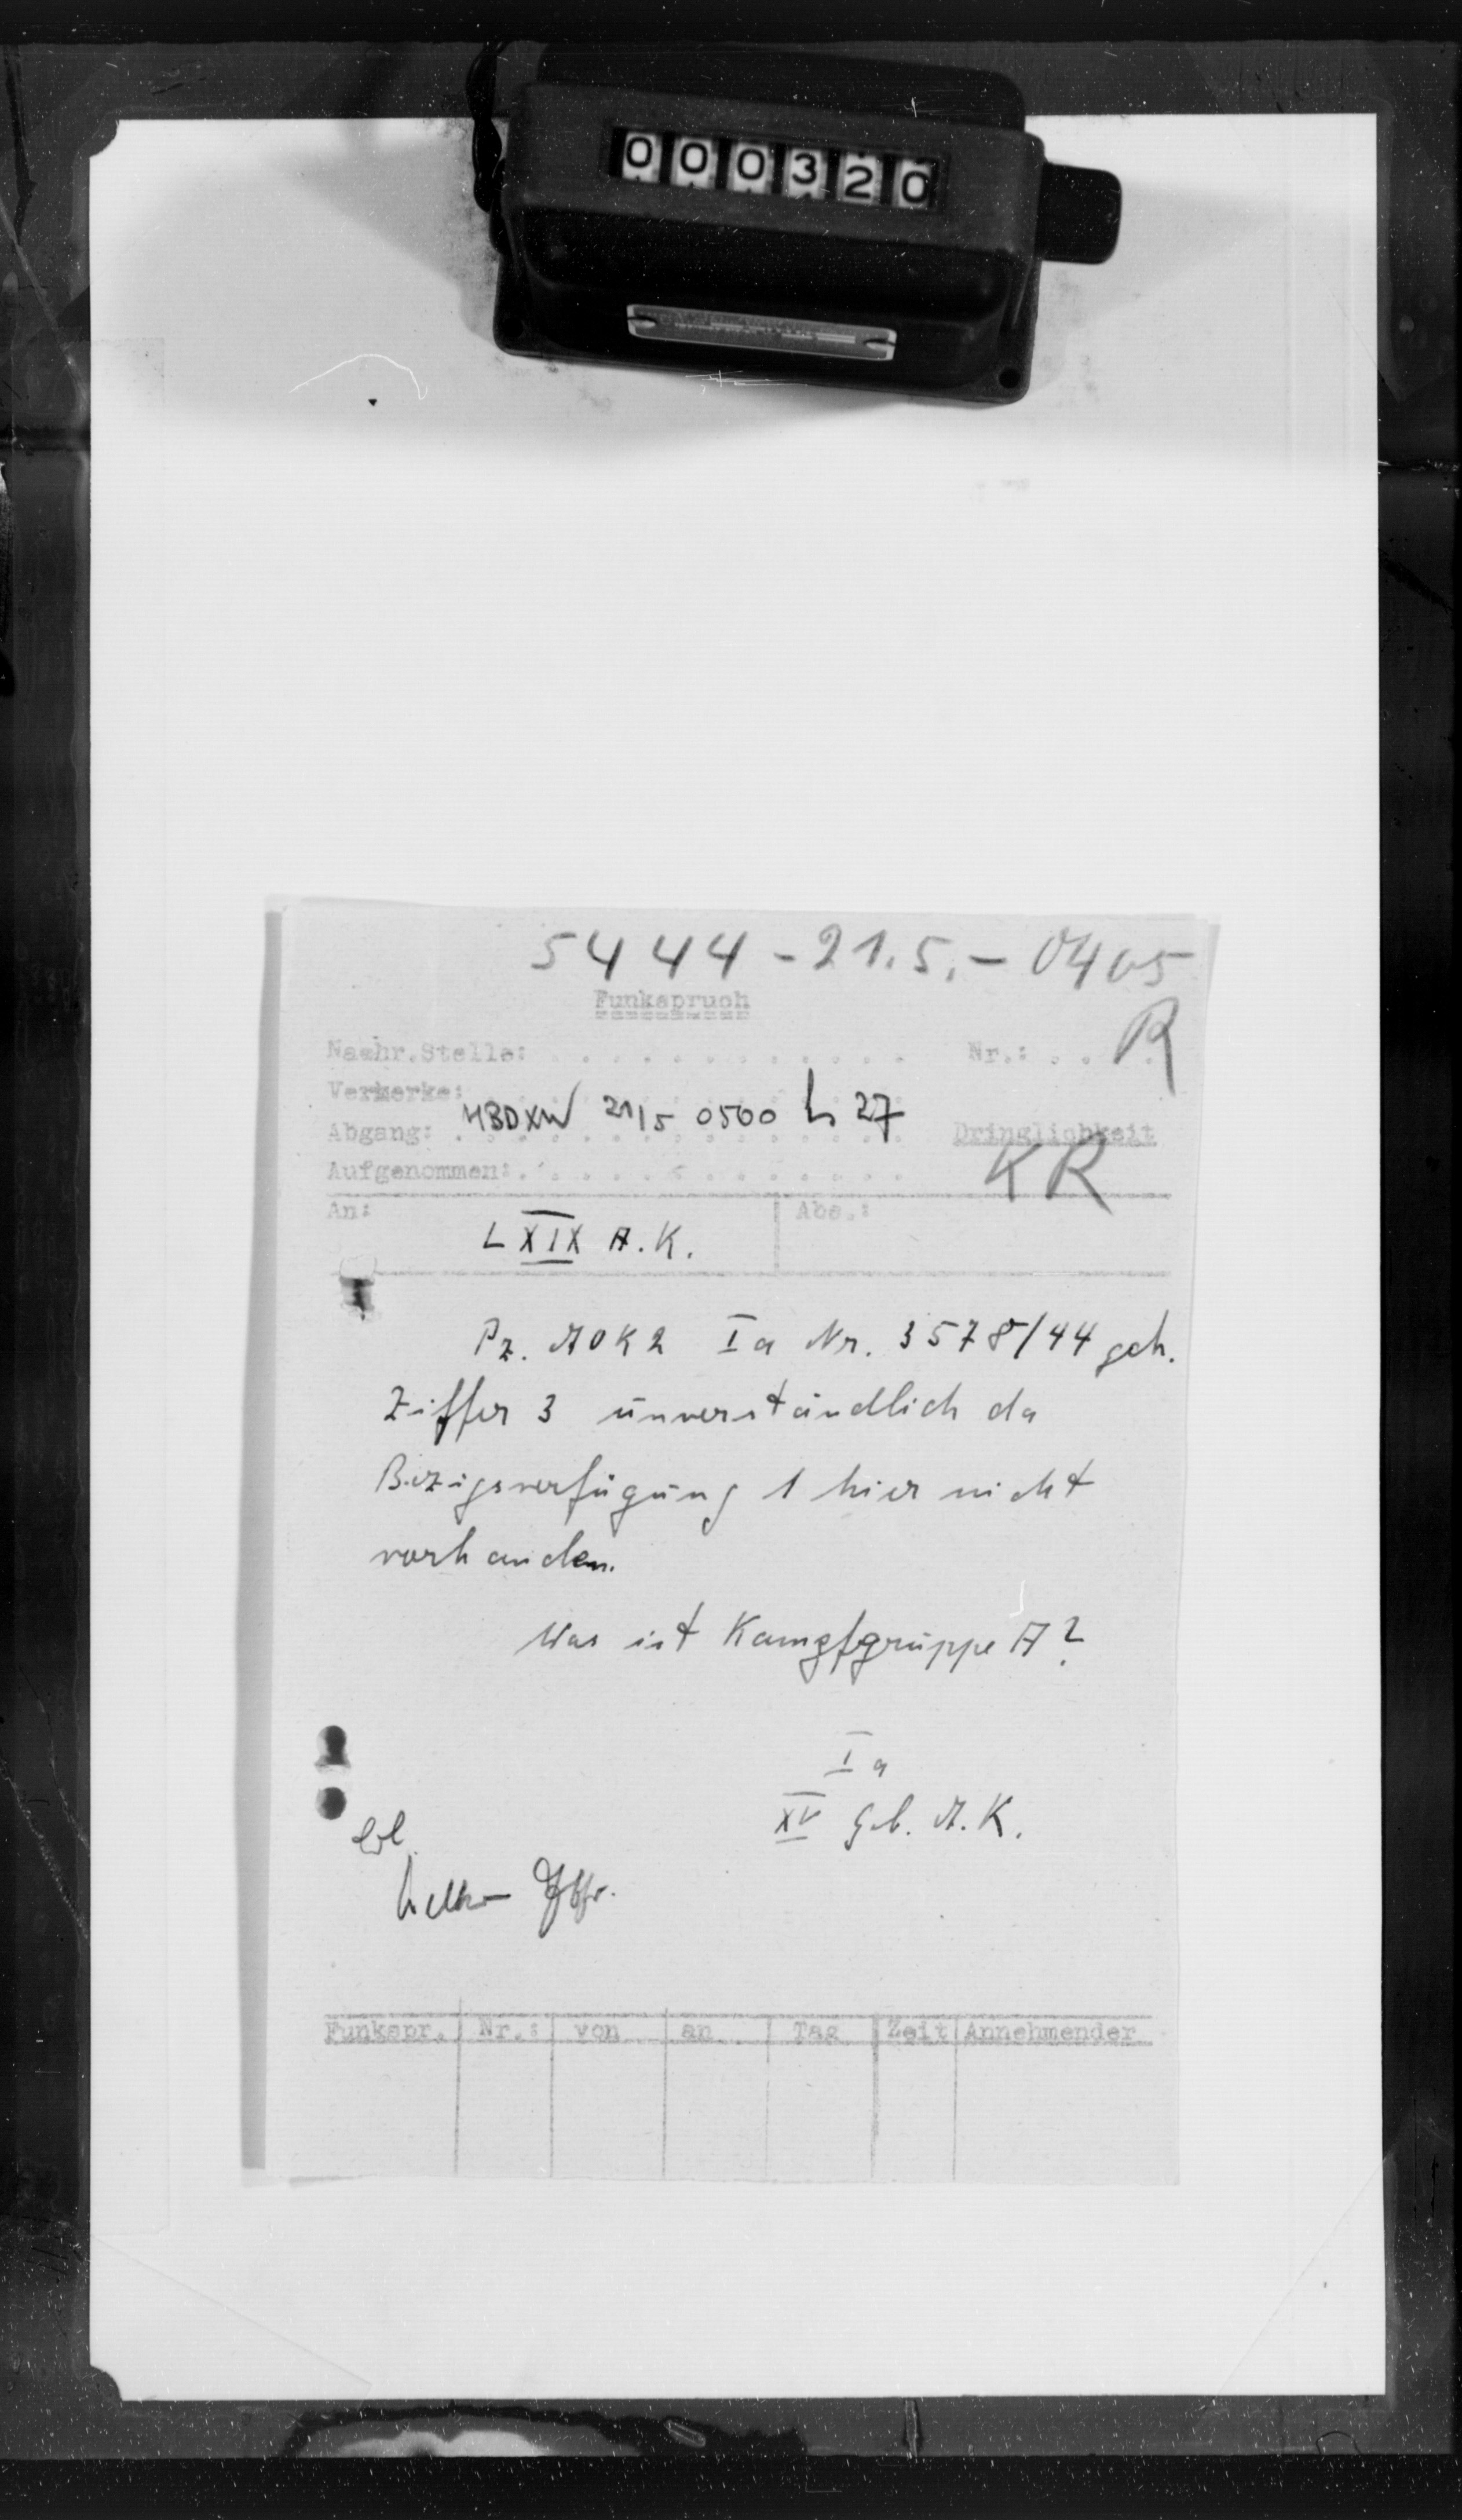 000320
5444 - 21.5. - 0405
Funkspruch
Nachr.Stelle: . . . . . . . . . . . . Nr.: . . R
Vermerke:
Abgang: 21/5 0500 27 Dringlichkeit
Aufgenommen: . . . . . . . . . . . . KR
An: Abs.:
LXIX A.K.
Pz. AOK 2 Ia Nr. 3578/44 geh.
Ziffer 3 unverständlich da
Bezugsverfügung 1 hier nicht
vorhanden.
Was ist Kampfgruppe A?
Ia
XV Geb. A.K.
Funkspr. Nr.: von an Tag Zeit Annehmender